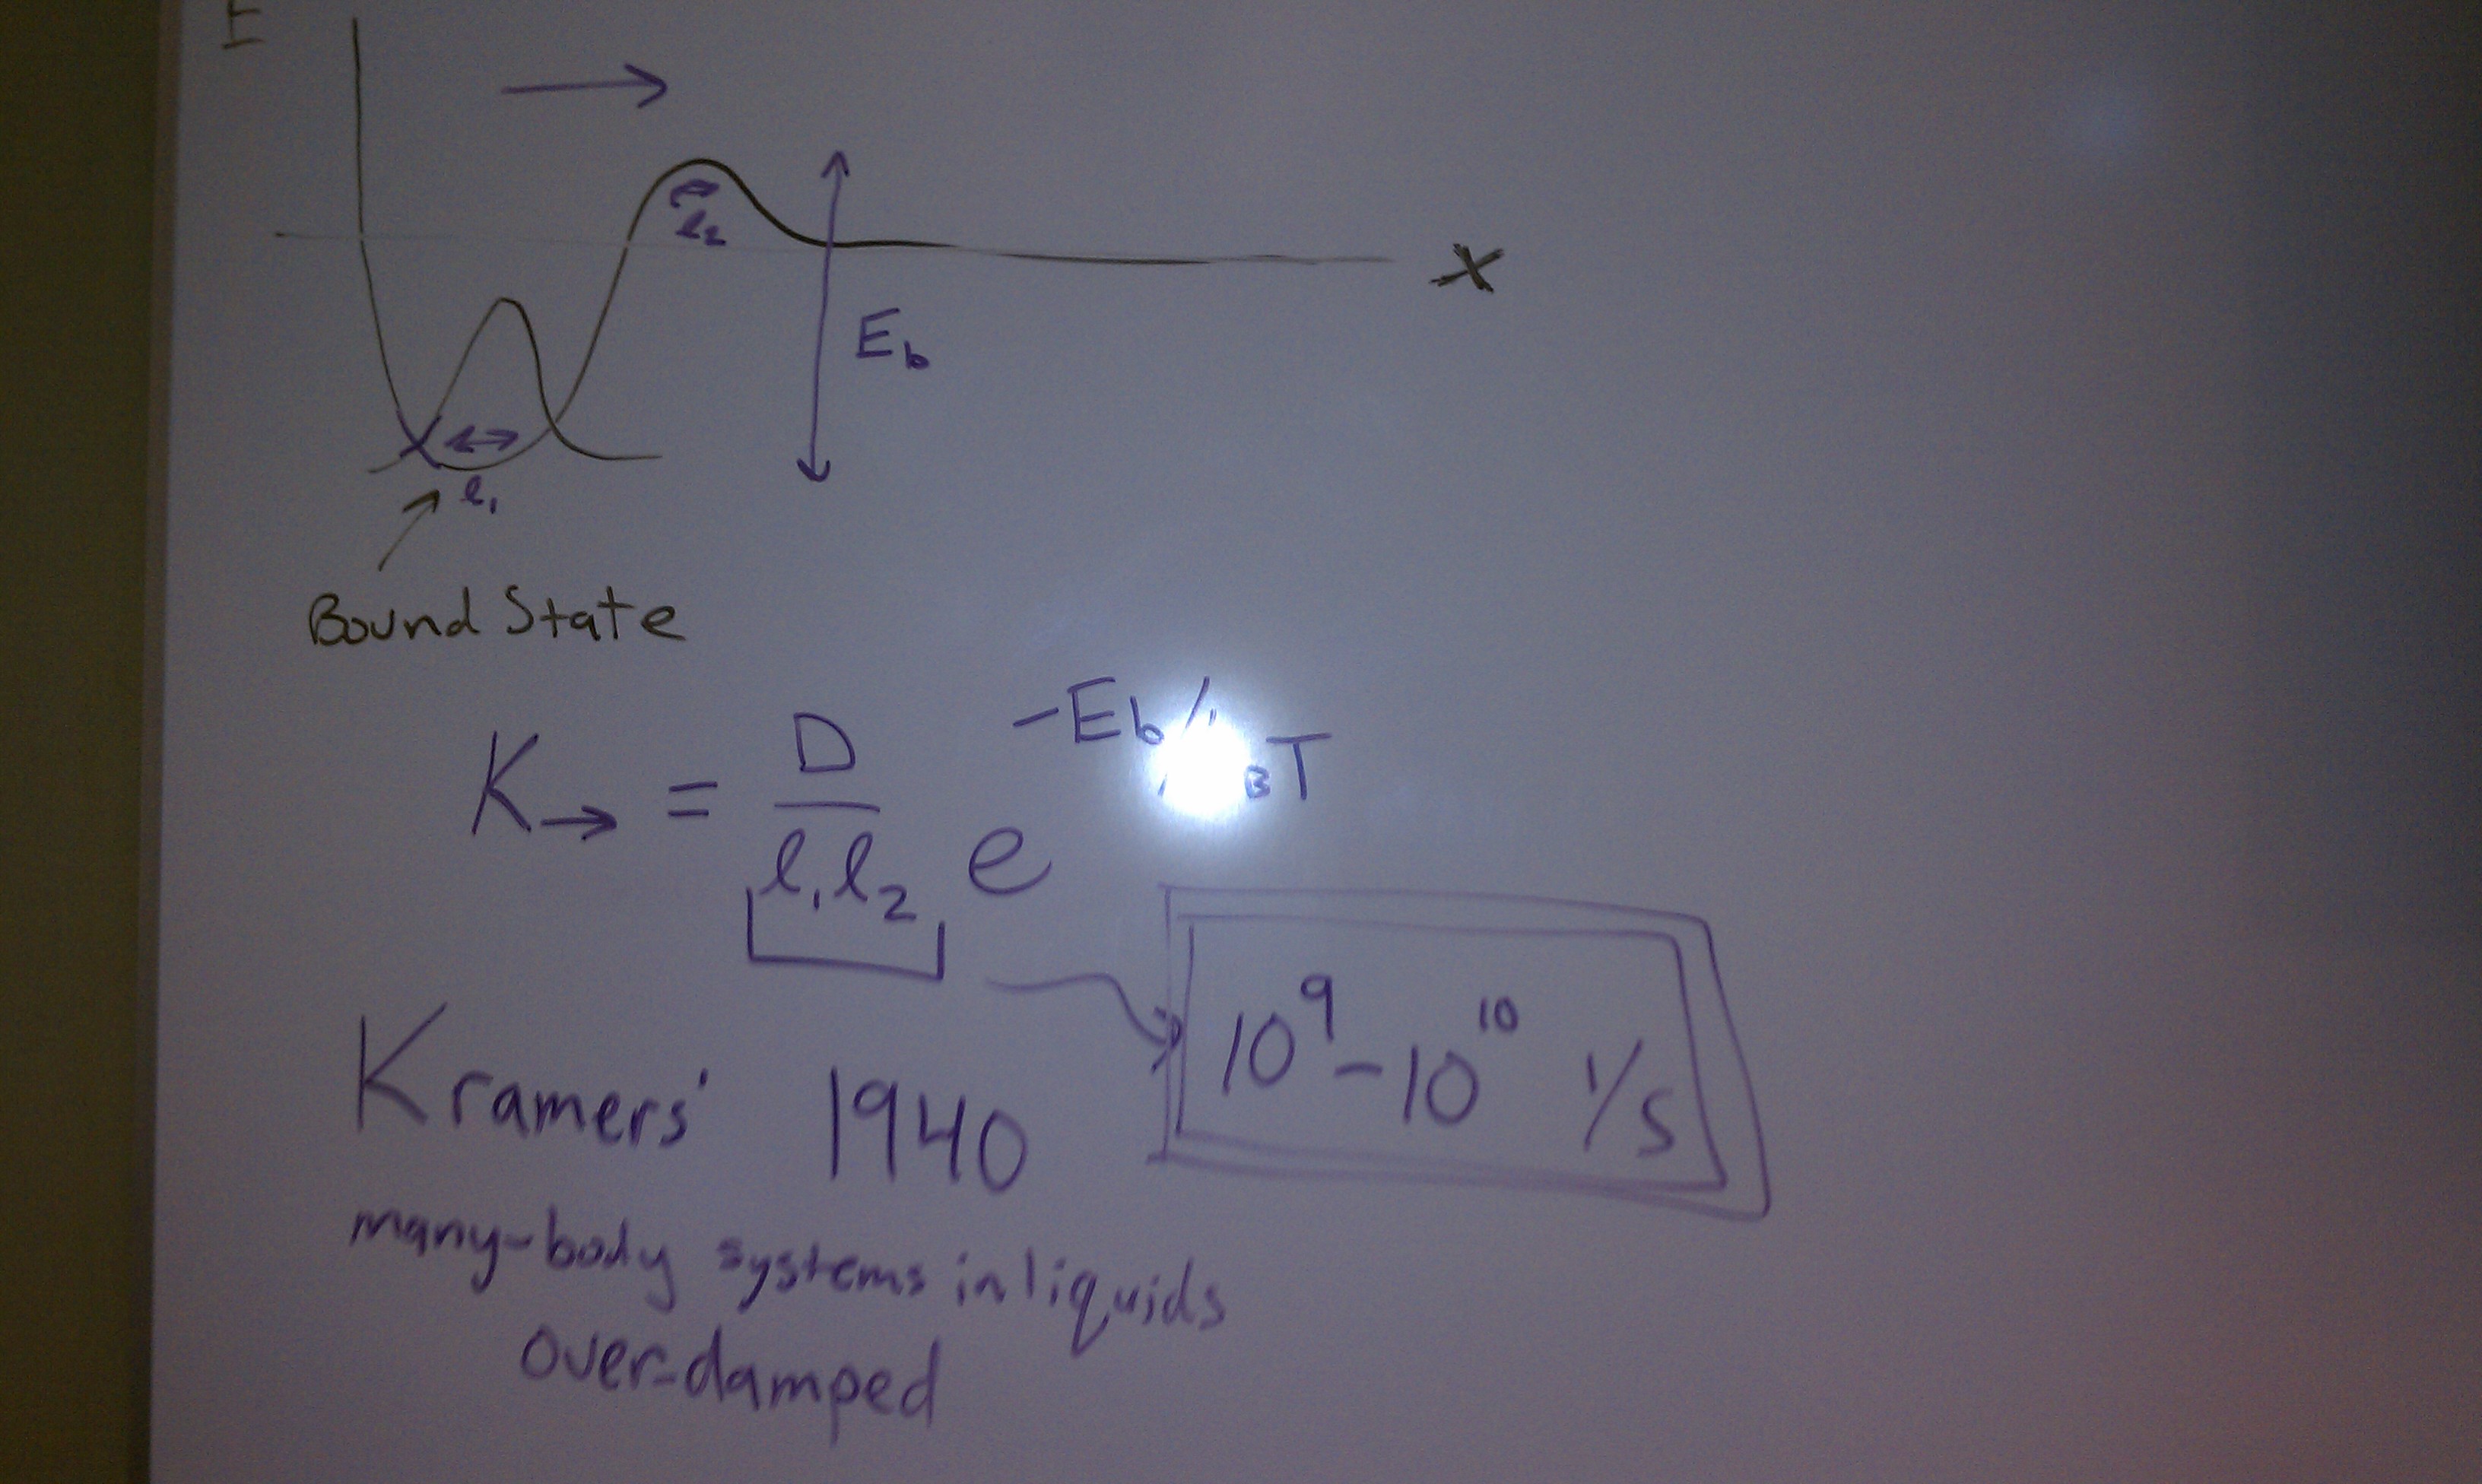 E
l₂
X
E_b
l₁
Bound State
K→ = D / l₁l₂ e^-Eb/ _BT
10⁹ - 10¹⁰ 1/s
Kramers' 1940
many-body systems in liquids
over-damped